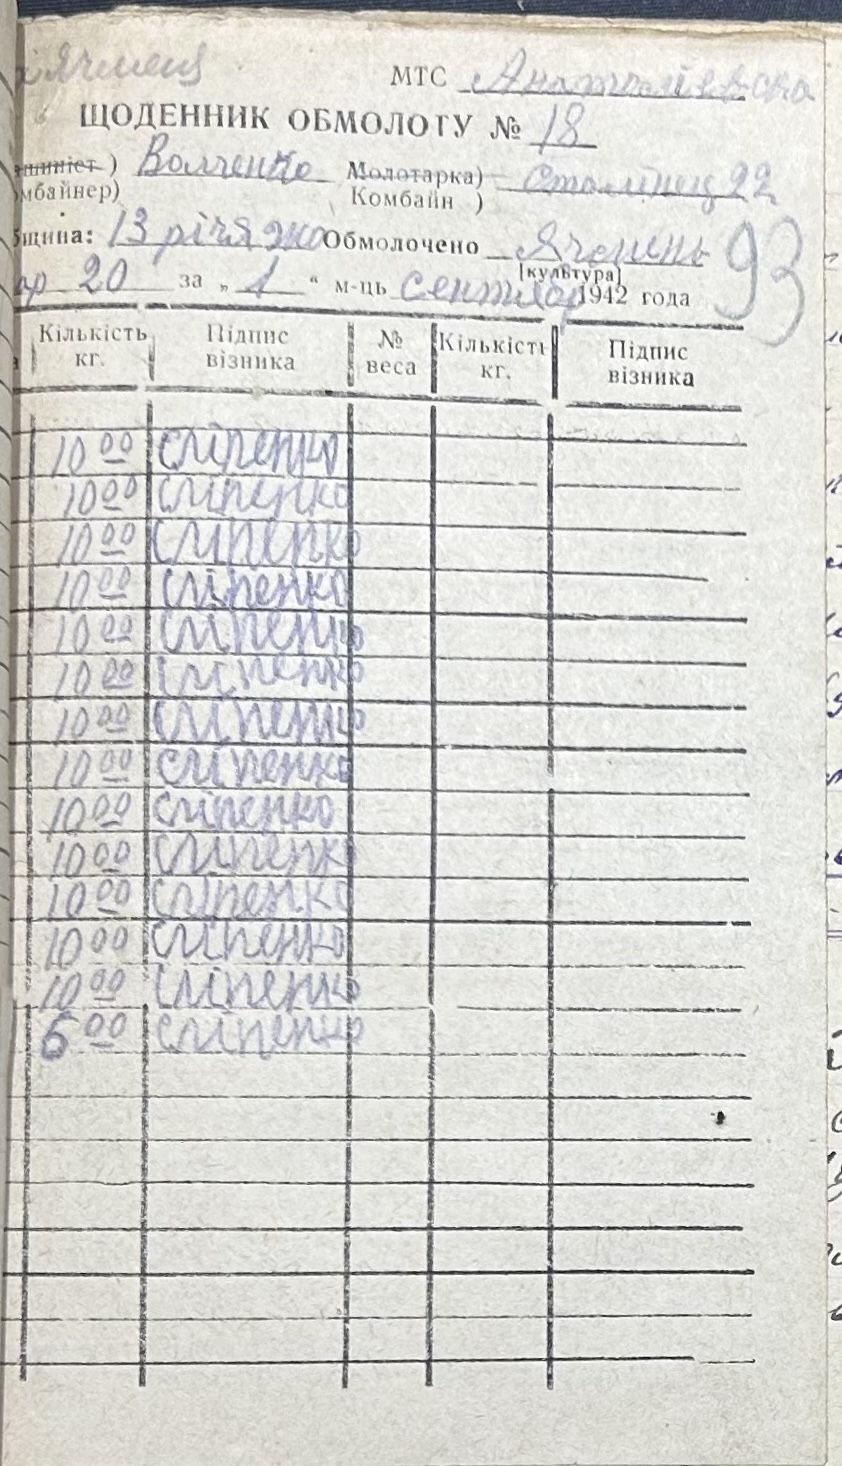 Ячменя
МТС Анатоліевска
ЩОДЕННИК ОБМОЛОТУ № 18
ашиніст ) Волченко Молотарка) Сталінец 22
омбайнер) Комбайн )
бщина: 13 річя Обмолочено Ячмень 93
[культура]
ар 20 за „ 1 “ м-ць сентябр 1942 года
Кількість кг. Підпис візника № веса Кількість кг. Підпис візника
10 00 сліпенко
10 00 сліпенко
10 00 сліпенко
10 00 сліпенко
10 00 сліпенко
10 00 сліпенко
10 00 сліпенко
10 00 сліпенко
10 00 сліпенко
10 00 сліпенко
10 00 сліпенко
10 00 сліпенко
10 00 сліпенко
6 00 сліпенко